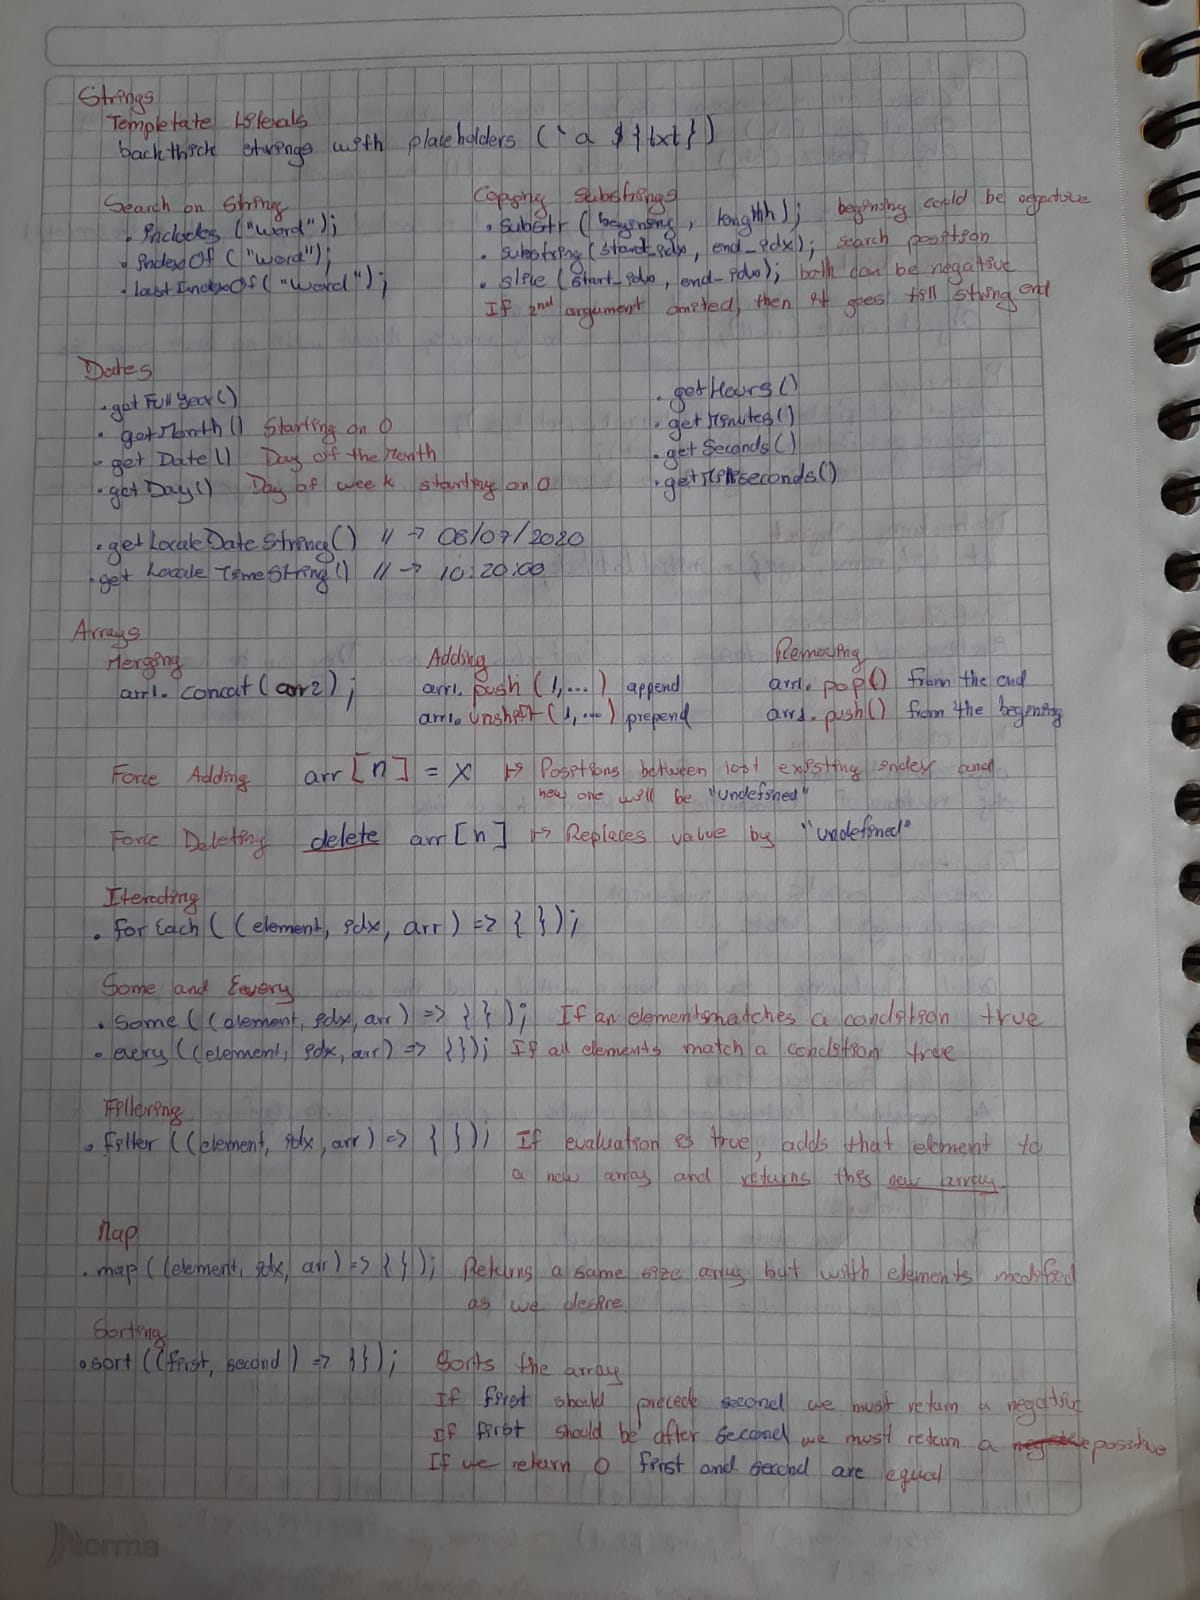 Strings
Templetate Literals
backthick strings with placeholders (`a ${txt})
Search on String
. includes ("word");
. indexOf ("word");
. lastIndexOf ("word");
Copying Substrings
. substr (begining, length); begining could be negative
. substring (start_idx, end_idx); search position
. slice (start_idx, end_idx); both can be negative
If 2nd argument omited, then it goes till string end
Dates
. getFullYear()
. getMonth() Starting on 0
. getDate() Day of the Month
. getDay() Day of week starting on 0
. getHours()
. getMinutes()
. getSeconds()
. getMilliseconds()
. getLocaleDateString() // -> 08/07/2020
. getLocaleTimeString() // -> 10:20:00
Arrays
Merging
arr1.concat(arr2);
Adding
arr1.push(1,...) append
arr1.unshift(1,...) prepend
Removing
arr1.pop() from the end
arr1.push() from the begening
Force Adding arr[n] = x ↦ Positions between last existing index and
new one will be "undefined"
Force Deleting delete arr[n] ↦ Replaces value by "undefined"
Iterating
. forEach((element, idx, arr) => { });
Some and Every
. some((element, idx, arr) => { }); If an element matches a condition true
. every((element, idx, arr) => { }); If all elements match a condition true
Filtering
. filter((element, idx, arr) => { }); If evaluation is true, adds that element to
a new array and returns this new array.
Map
. map((element, idx, arr) => { }); Returns a same size array but with elements modified
as we desire.
Sorting
. sort((first, second) => { }); Sorts the array
If first should precede second we must return a negative
If first should be after second we must return a positive
If we return 0 first and second are equal
Norma